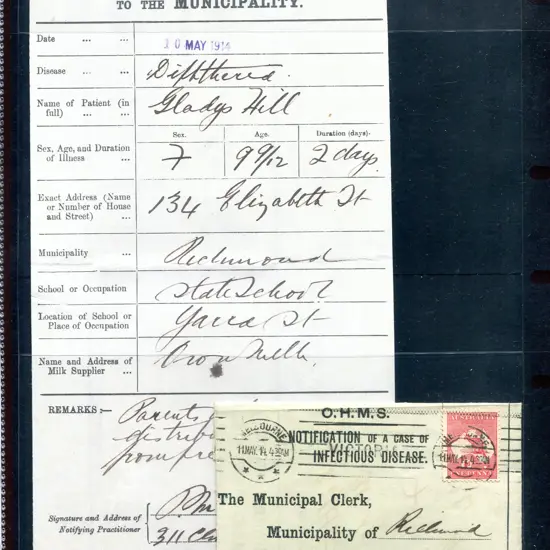 TO THE MUNICIPALITY.
Date ... ... 10 MAY 1914
Disease ... ... Diphtherea.
Name of Patient (in full) ... ... Gladys Hill
Sex. Age. Duration (days).
Sex, Age, and Duration of Illness ... F 9 9/12 2 days
Exact Address (Name or Number of House and Street) ... 134 Elizabeth St
Municipality ... Richmond
School or Occupation State School
Location of School or Place of Occupation Yarra St
Name and Address of Milk Supplier ...
REMARKS:— Parents
distrib
Signature and Address of Notifying Practitioner 311
O.H.M.S.
MELBOURNE 11 MAY 14
NOTIFICATION OF A CASE OF
INFECTIOUS DISEASE.
VICTORIA
The Municipal Clerk,
Municipality of Richmond